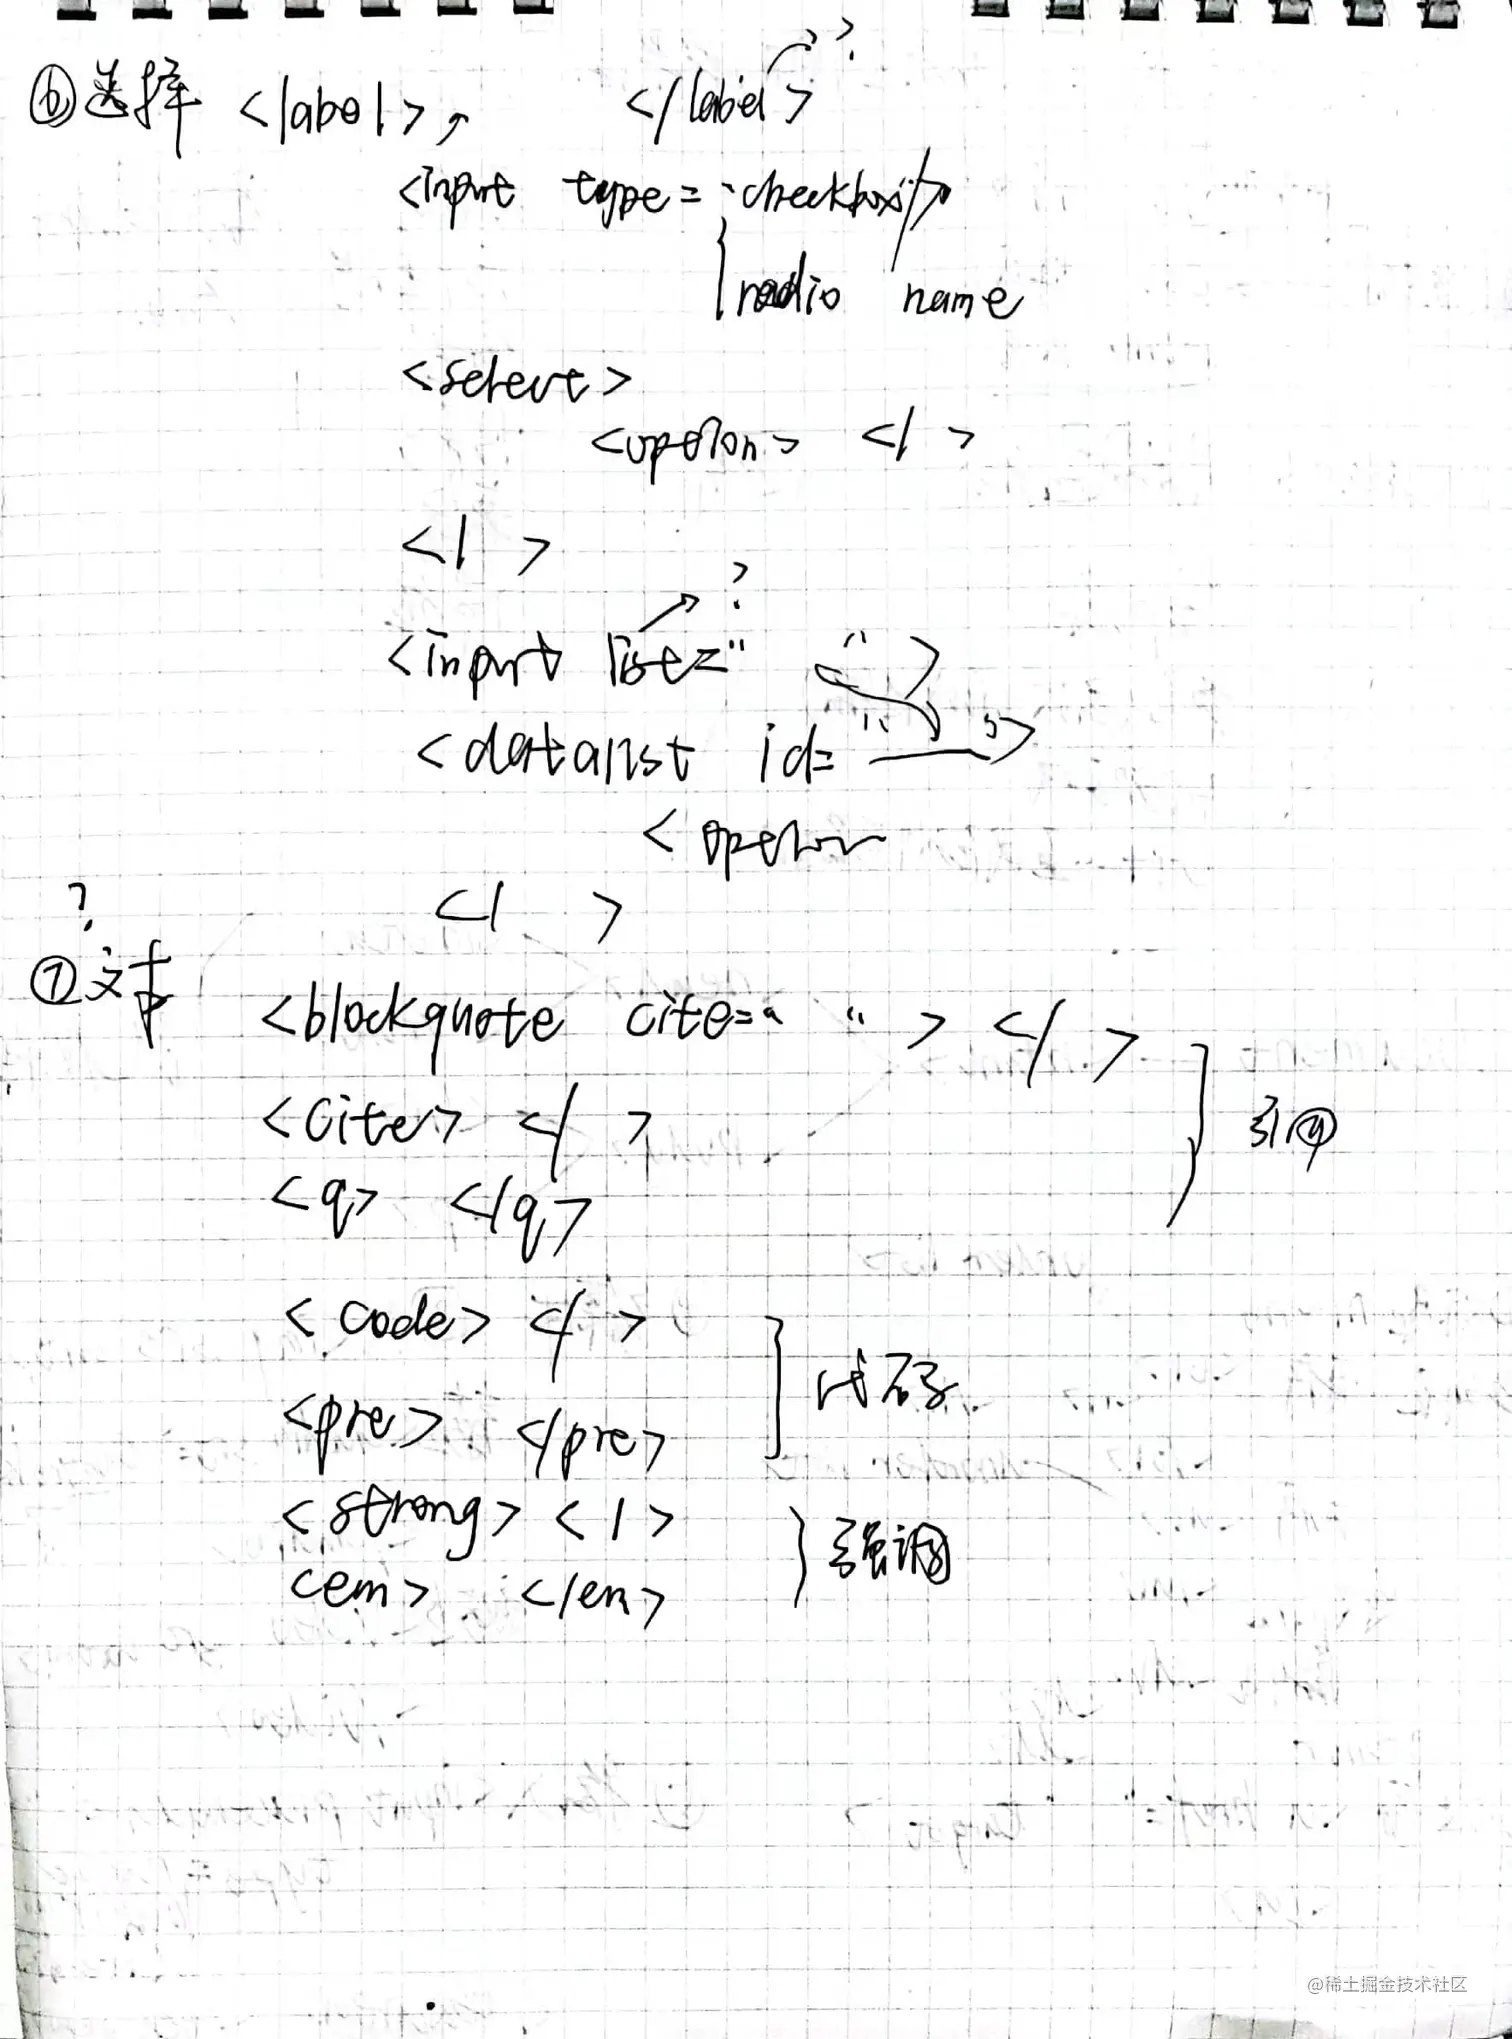 ?
⑥选择 <label> </label>
<input type="checkbox"/>
radio name
<select>
<option> </ >
</ >
?
<input list=" ">
<datalist id=" ">
<option
</ >
?
⑦文本
<blockquote cite=" " > </ >
<cite> </ >
引用
<q> </q>
<code> </ >
代码
<pre> </pre>
<strong> </ >
强调
<em> </em>
@稀土掘金技术社区